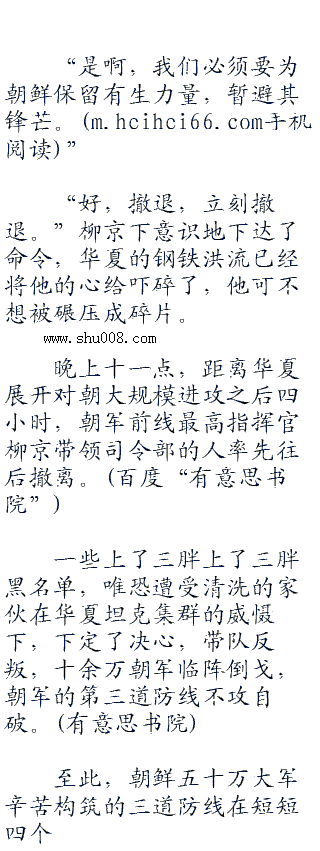 “是啊，我们必须要为
朝鲜保留有生力量，暂避其
锋芒。(m.hcihci66.com手机
阅读)”
“好，撤退，立刻撤
退。”柳京下意识地下达了
命令，华夏的钢铁洪流已经
将他的心给吓碎了，他可不
想被碾压成碎片。
www.shu008.com
晚上十一点，距离华夏
展开对朝大规模进攻之后四
小时，朝军前线最高指挥官
柳京带领司令部的人率先往
后撤离。(百度“有意思书
院”)
一些上了三胖上了三胖
黑名单，唯恐遭受清洗的家
伙在华夏坦克集群的威慑
下，下定了决心，带队反
叛，十余万朝军临阵倒戈，
朝军的第三道防线不攻自
破。(有意思书院)
至此，朝鲜五十万大军
辛苦构筑的三道防线在短短
四个